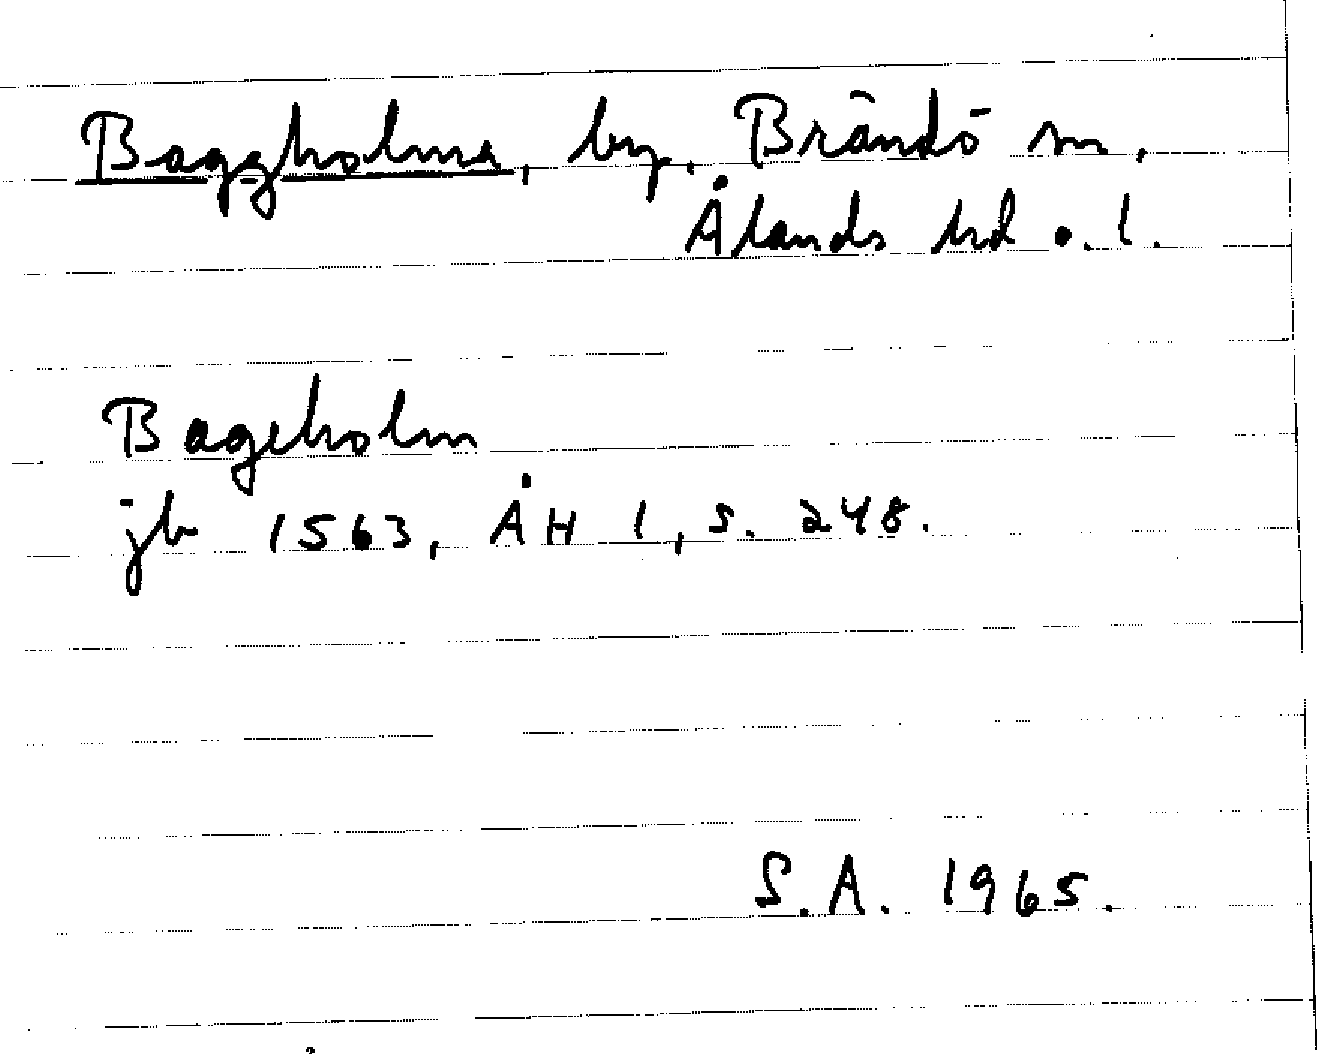 Baggholma, by, Brändö sn,
Ålands hd o. l.
Bageholm
jb 1563, ÅH 1, s. 248.
S.A. 1965.